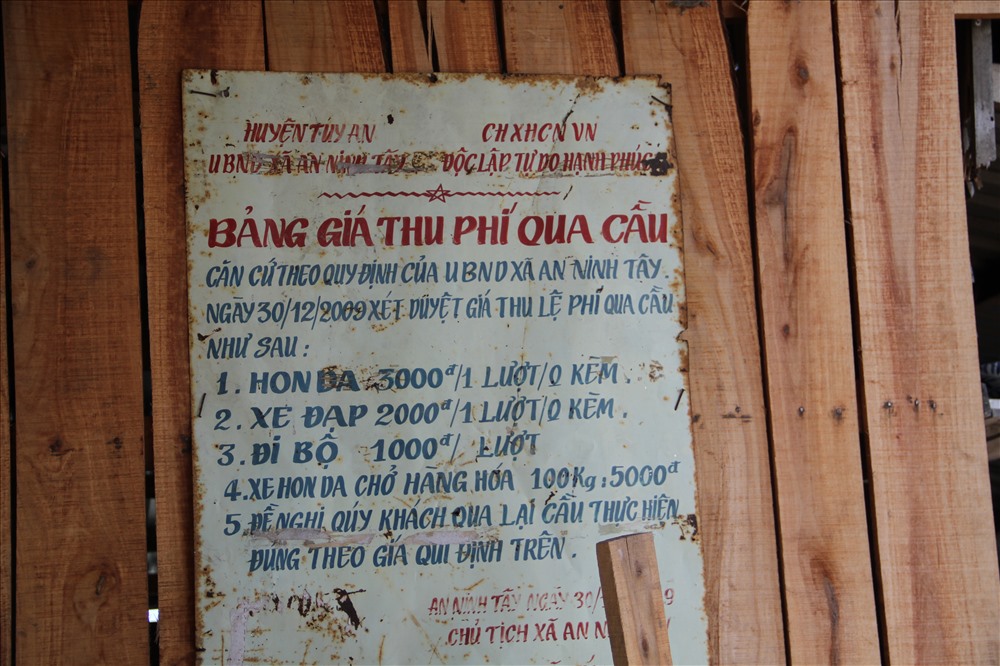 HUYỆN TUY AN CHXHCN VN
UBND XÃ AN NINH TÂY ĐỘC LẬP TỰ DO HẠNH PHÚC
BẢNG GIÁ THU PHÍ QUA CẦU
CĂN CỨ THEO QUY ĐỊNH CỦA UBND XÃ AN NINH TÂY.
NGÀY 30/12/2009 XÉT DUYỆT GIÁ THU LỆ PHÍ QUA CẦU
NHƯ SAU:
1. HONDA 3000đ/1 LƯỢT/0 KÈM.
2. XE ĐẠP 2000đ/1 LƯỢT/0 KÈM.
3. ĐI BỘ 1000đ/ LƯỢT
4. XE HONDA CHỞ HÀNG HÓA 100Kg: 5000đ
5 ĐỀ NGHỊ QÚY KHÁCH QUA LẠI CẦU THỰC HIỆN
ĐÚNG THEO GIÁ QUI ĐỊNH TRÊN.
AN NINH TÂY NGÀY 30/
CHỦ TỊCH XÃ AN